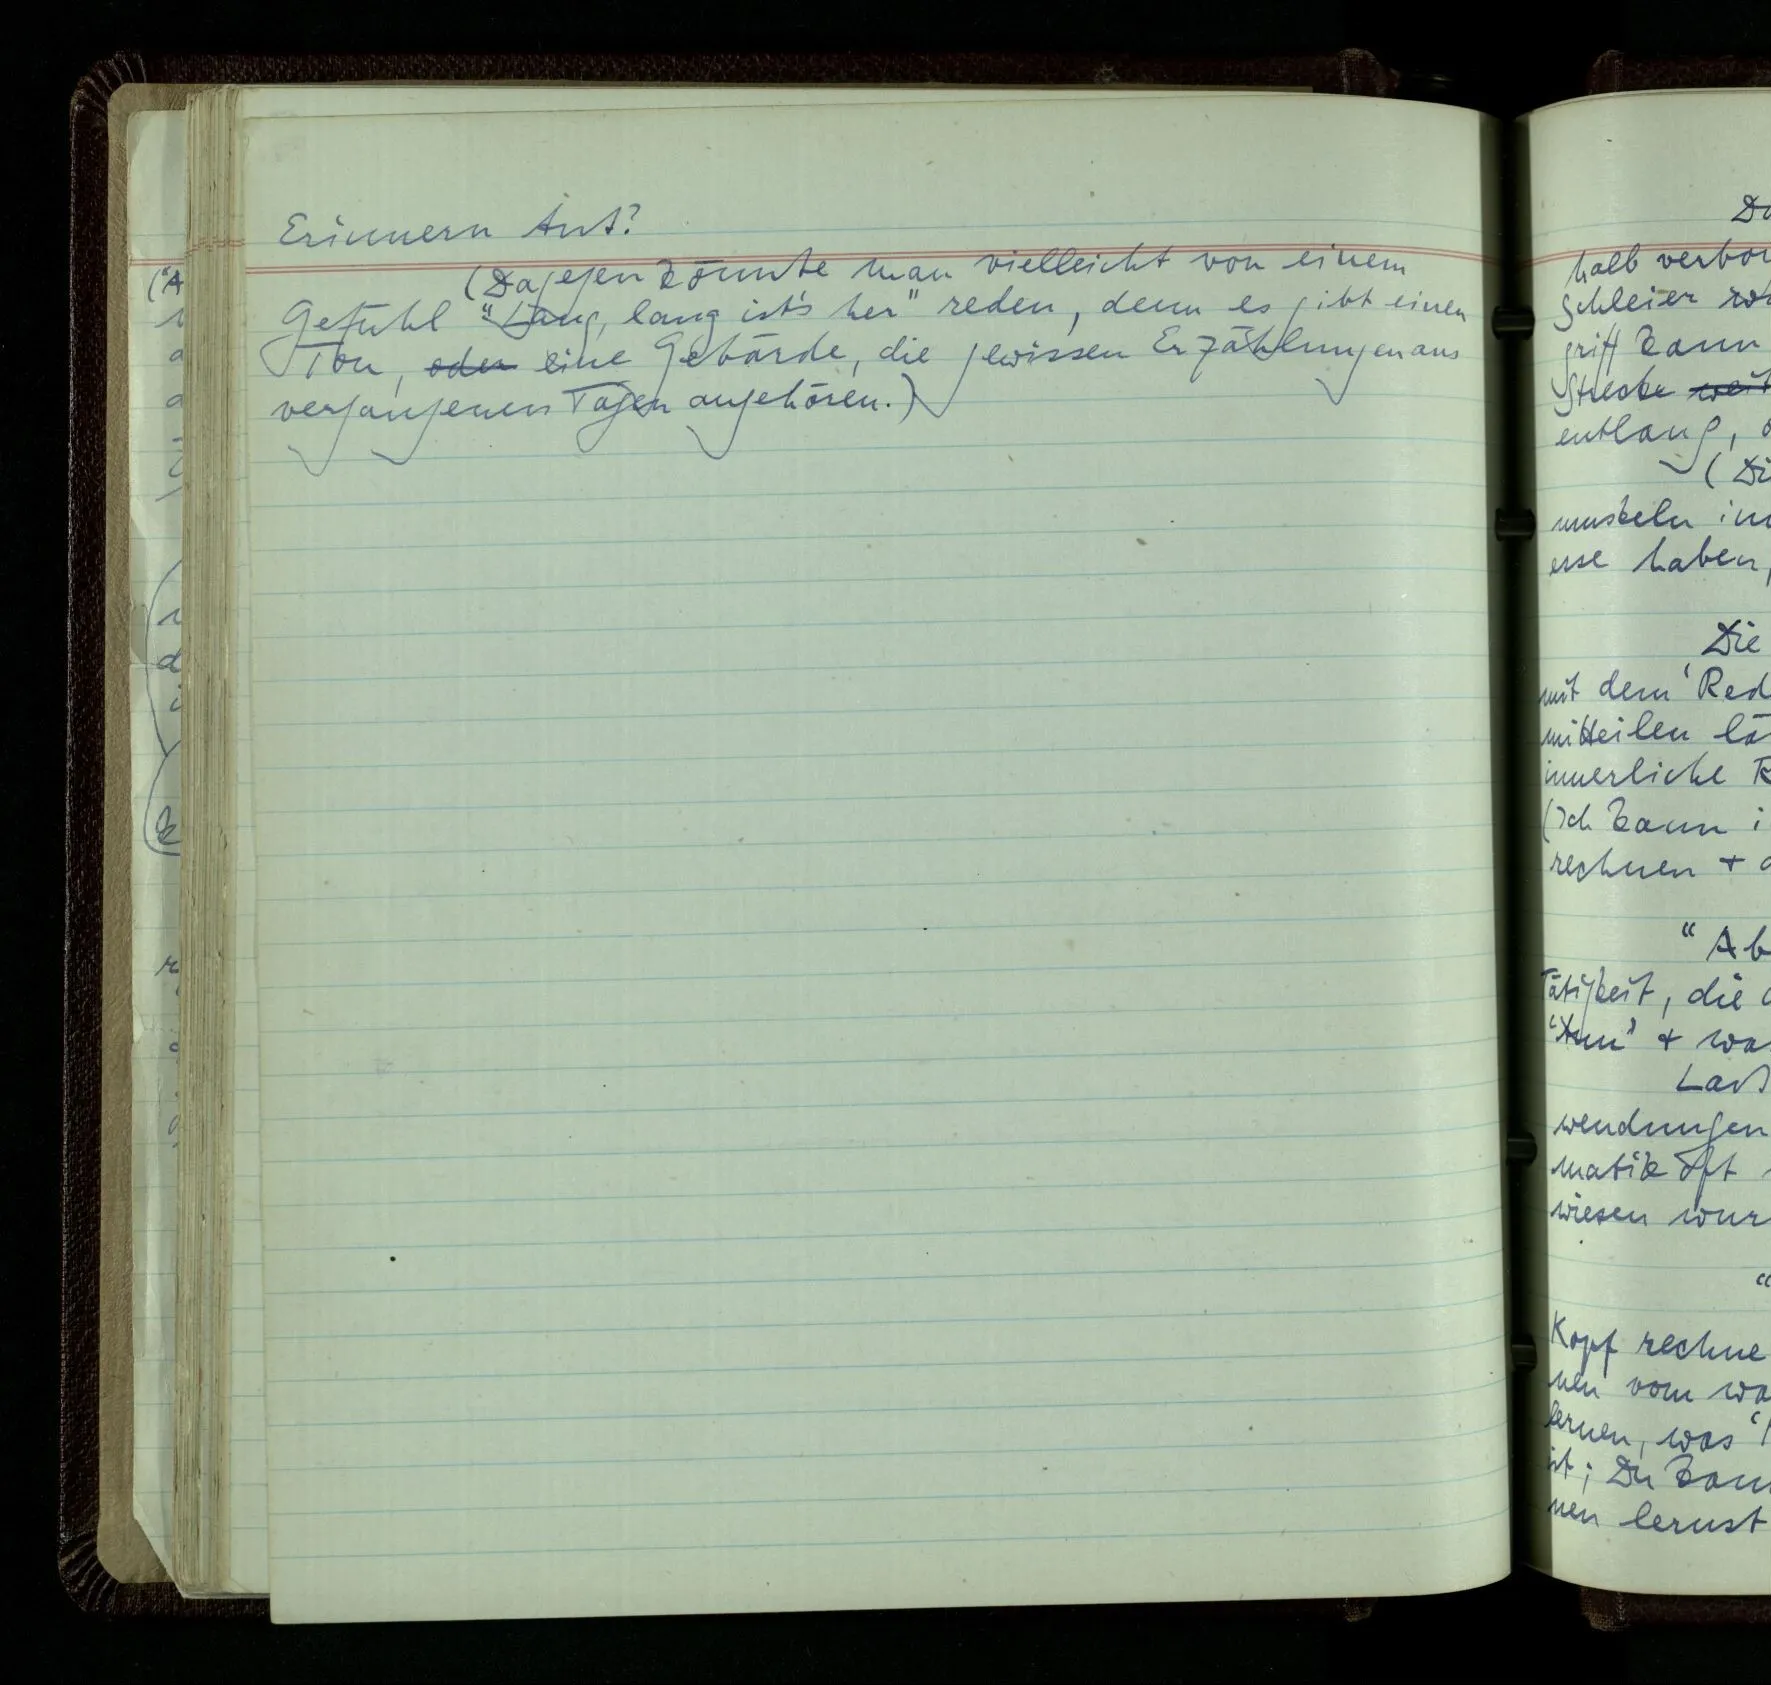 Erinnern tut?
(Dagegen könnte man vielleicht von einem
Gefühl "Lang, lang ist's her" reden, denn es gibt einen
Ton, oder eine Gebärde, die gewissen Erzählungen aus
vergangenen Tagen angehören.)
("A
halb verbor
Schleier
griff kann
Strecke weit
entlang,
(Di
muskeln im
esse haben,
Die
mit dem 'Red
mitteilen lä
innerliche R
(Ich kann i
rechnen +
"Ab
Tätigkeit, die
'tun' + wa
Laß
wendungen
matik oft
wiesen wur
"
Kopf rechne
nen vom wa
lernen, was '
ist; Du kann
nen lernst